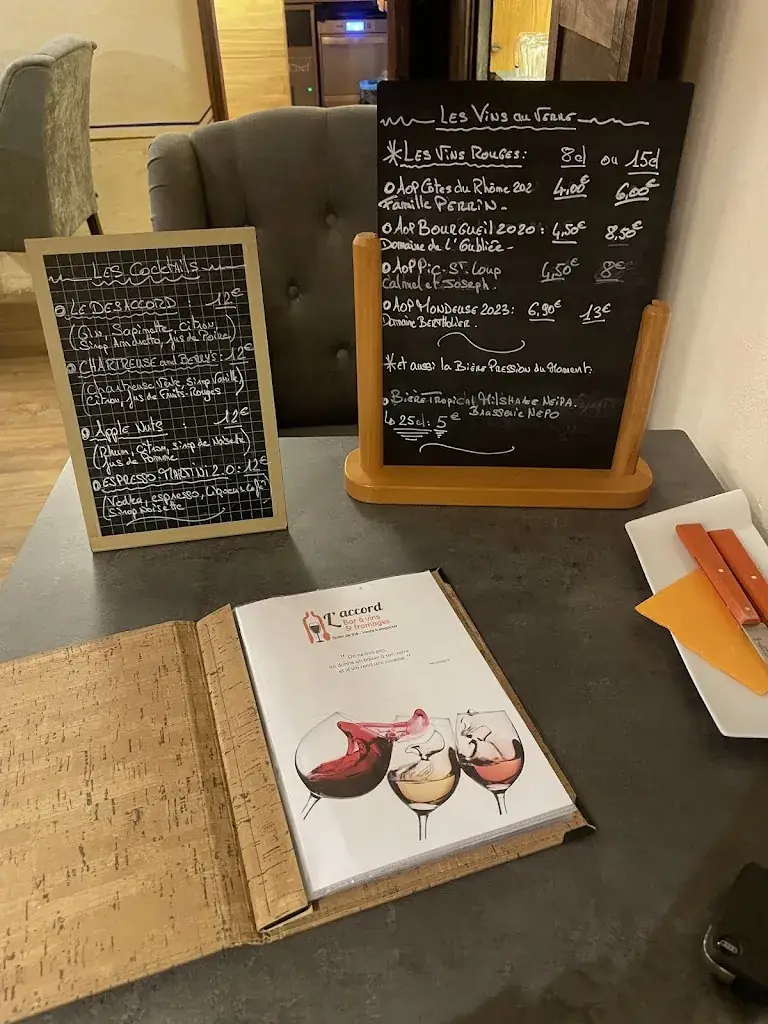 Les Cocktails
Le Desaccord : 12€
(Gin, Sapinette, Citron,
Sirop Amaretto, Jus de Poire)
Chartreuse and Berry's: 12€
(Chartreuse Verte, Sirop Vanille,
Citron, Jus de Fruits Rouges
Apple Nuts : 12€
(Rhum, Citron, sirop de Noisette
Jus de Pomme
Espresso Martini 2.0: 12€
(Vodka, espresso, Liqueur Café
Sirop Noisette
Les Vins au Verre
*Les Vins Rouges: 8cl ou 15cl
AoP Côtes du Rhône 202 4,00€ 6,00€
Famille Perrin
AoP Bourgueil 2020: 4,50€ 8,50€
Domaine de l'Oubliée
AoP Pic-St Loup 4,50€ 8€
Calmel et Joseph.
AoP Mondeuse 2023: 6,90€ 13€
Domaine Berthollier.
*et aussi la Bière Pression du Moment:
Bière Tropical Milkshake NEIPA.
Brasserie NEPO
25cl: 5€
L'accord
Bar à vins
& fromages
" On ne boit pas,
on donne un baiser à son verre
et le vin rend une caresse. "